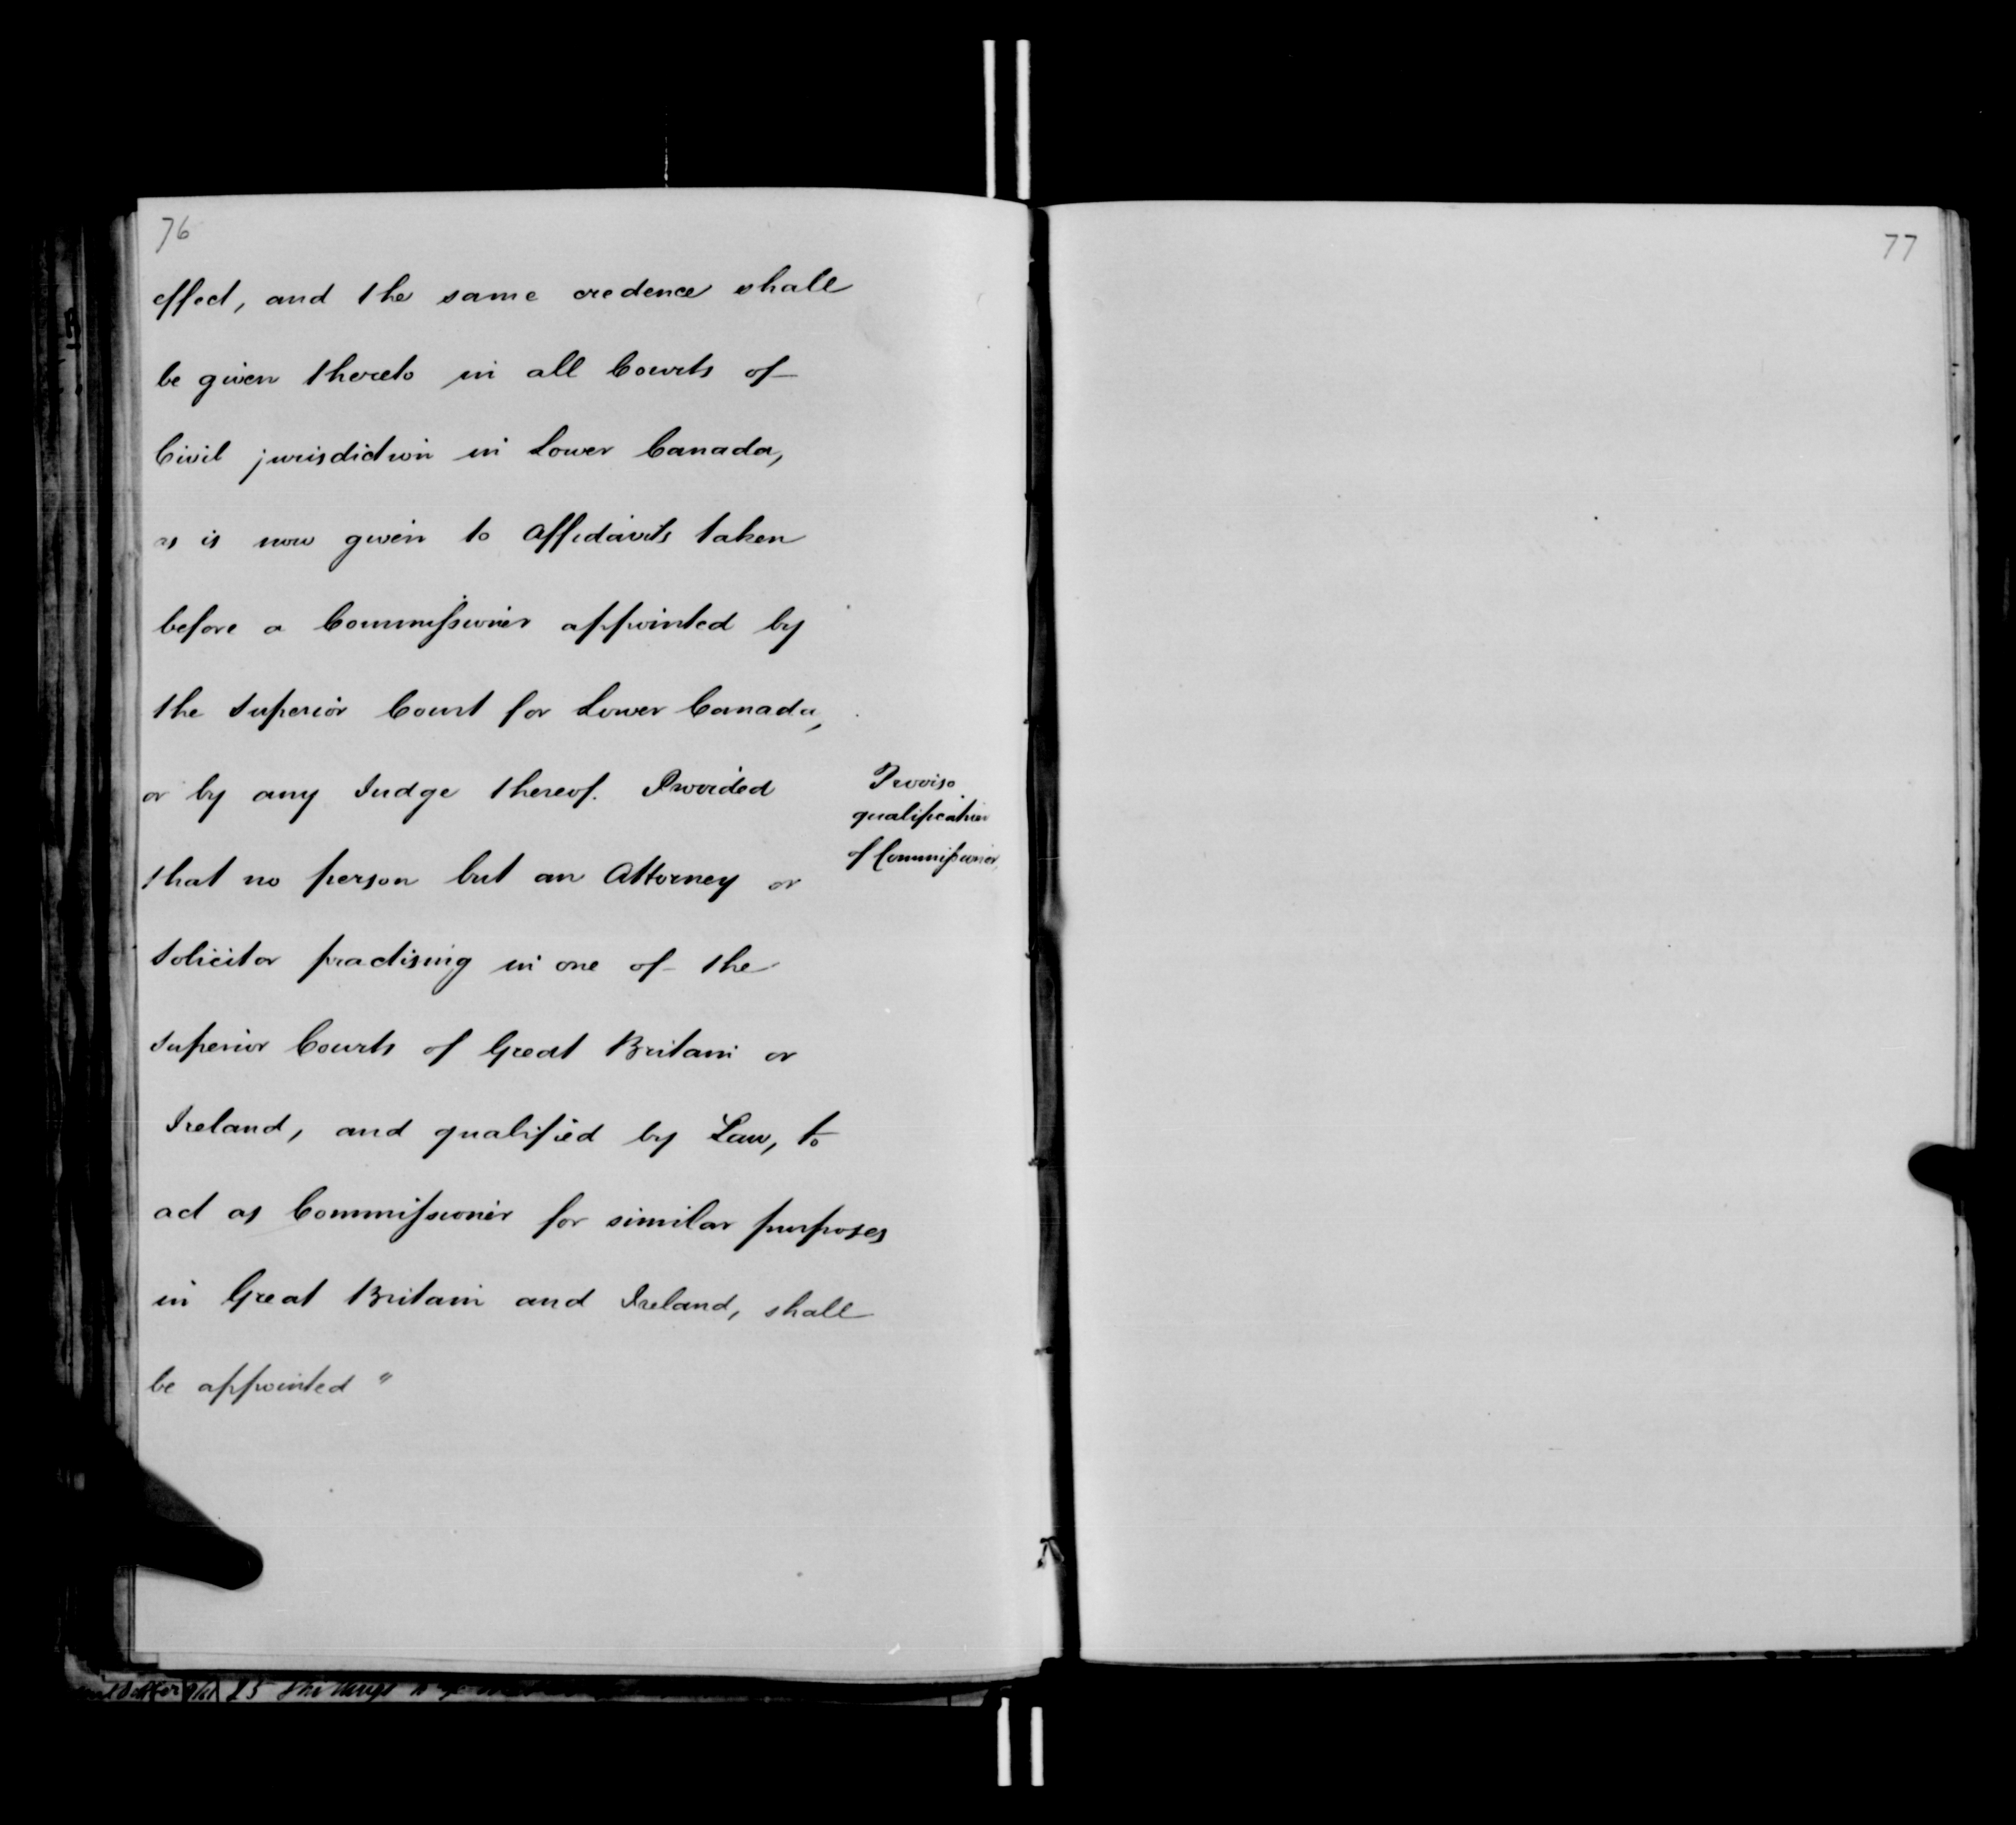 76
effect, and the same credence shall
be given thereto in all Courts of
Civil jurisdiction in Lower Canada,
as is now given to Affidavits taken
before a Commissioner appointed by
the Superior Court for Lower Canada,
or by any Judge thereof. Provided
that no person but an Attorney or
Solicitor practising in one of the
Superior Courts of Great Britain or
Ireland, and qualified by Law, to
act as Commissioner for similar purposes
in Great Britain and Ireland, shall
be appointed "
Proviso
qualification
of Commissioner
77